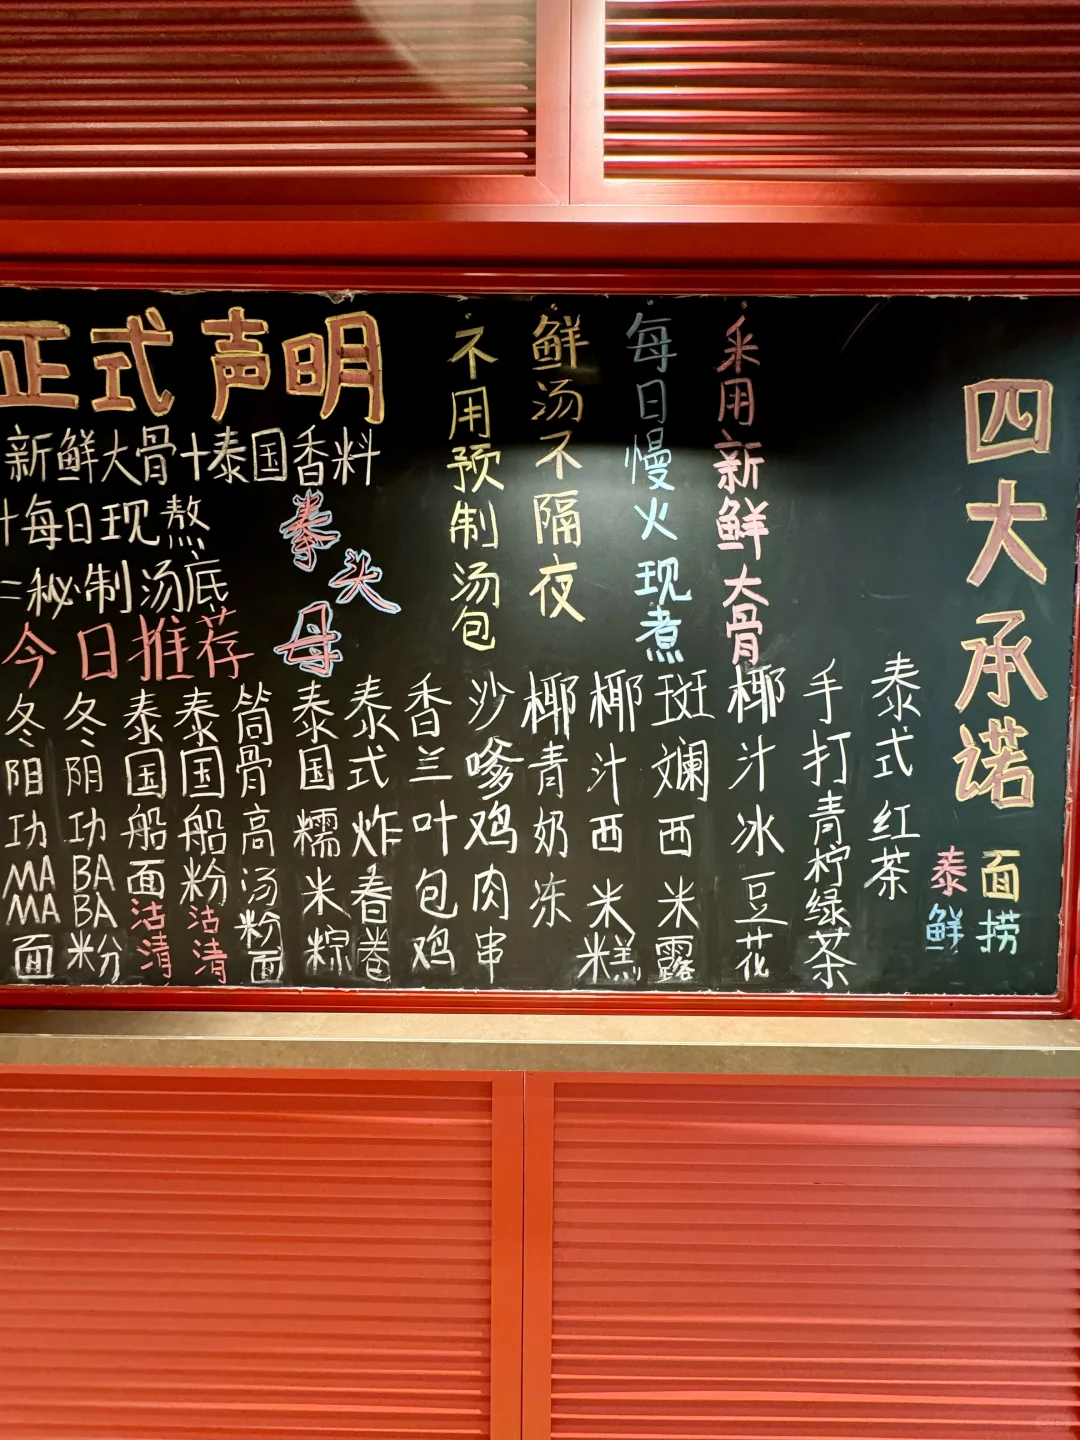 正式声明
新鲜大骨+泰国香料
+每日现熬
=秘制汤底
拳头母
今日推荐
四大承诺
采用新鲜大骨
每日慢火现煮
鲜汤不隔夜
不用预制汤包
冬阴功MAMA面
冬阴功BABA粉
泰国船面沽清
泰国船粉沽清
筒骨高汤粉面
泰国糯米粽
泰式炸春卷
香兰叶包鸡
沙嗲鸡肉串
椰青奶冻
椰汁西米糕
斑斓西米露
椰汁冰豆花
手打青柠绿茶
泰式红茶
泰面
鲜捞